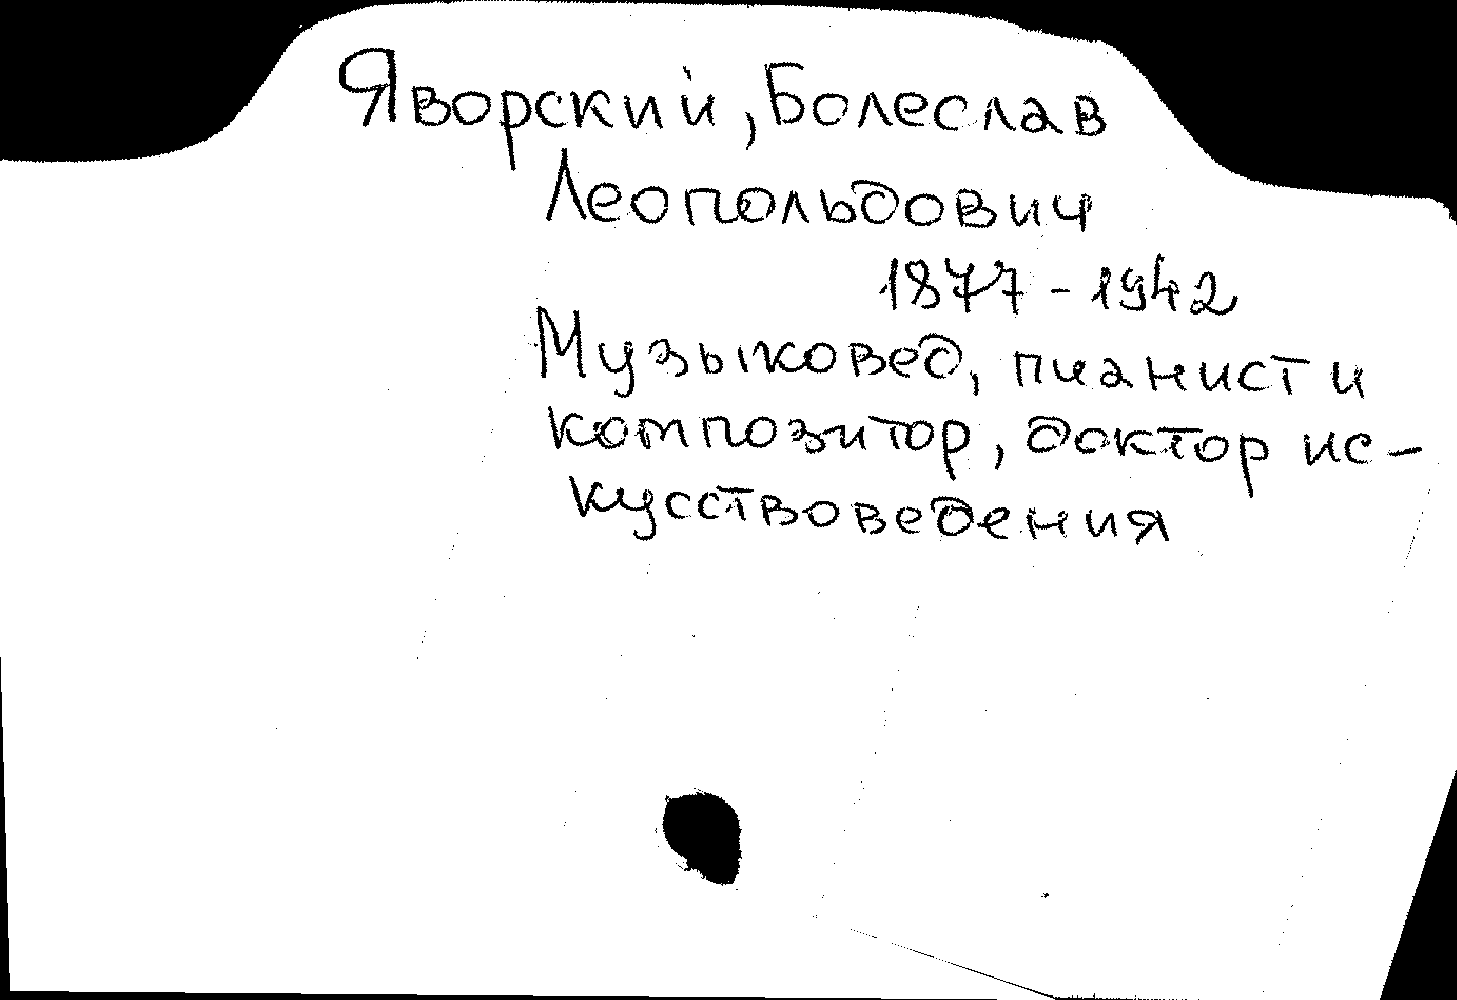 Яворский, Болеслав
Леопольдович
1877 - 1942
Музыковед, пианист и
композитор, доктор ис-
кусствоведения